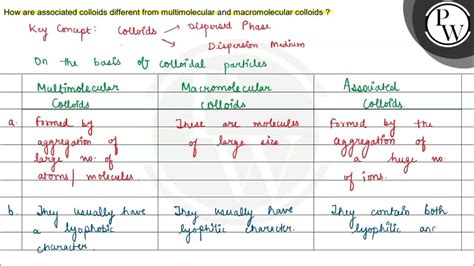 How are associated colloids different from multimolecular and macromolecular colloids ?
Key Concept: Colloids → Dispersed Phase
→ Dispersion Medium
On the basis of colloidal particles
Multimolecular Colloids
Macromolecular Colloids
Associated Colloids
a. Formed by
aggregation of
large no. of
atoms/molecules.
These are molecules
of large size
Formed by the
aggregation of
a huge no.
of ions.
b. They usually have
a lyophobic
character.
They usually have
lyophilic character.
They contain both
lyophilic and
PW